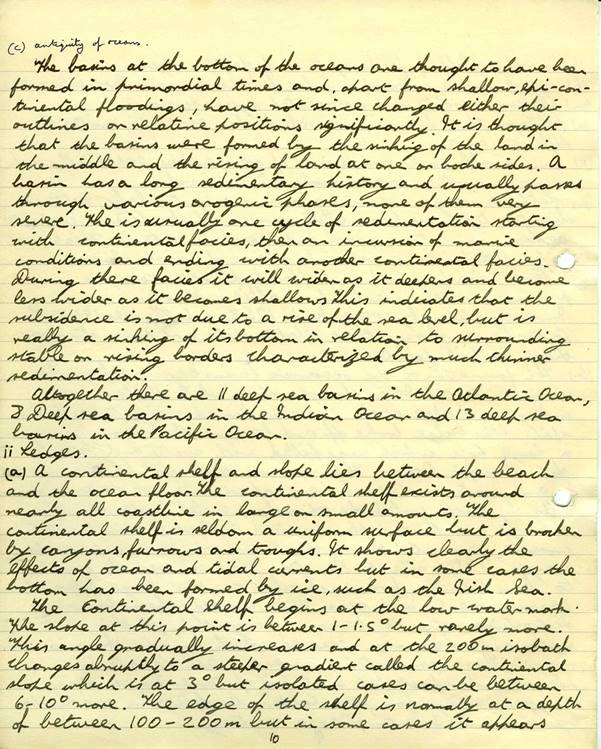 (c) antiquity of oceans.
The basins at the bottom of the oceans are thought to have been
formed in primordial times and, apart from shallow, epi-con-
tinental floodings, have not since changed either their
outlines or relative positions significantly. It is thought
that the basins were formed by the sinking of the land in
the middle and the rising of land at one or both sides. A
basin has a long sedimentary history and usually passes
through various orogenic phases, none of them very
severe. The is usually one cycle of sedimentation starting
with continental facies, then an incursion of marine
conditions and ending with another continental facies.
During there facies it will widen as it deepens and become
less wider as it becomes shallows. This indicates that the
subsidence is not due to a rise of the sea level, but is
really a sinking of its bottom in relation to surrounding
stable or rising borders characterized by much thinner
sedimentation.
Altogether there are 11 deep sea basins in the Atlantic Ocean,
3 Deep sea basins in the Indian Ocean and 13 deep sea
basins in the Pacific Ocean.
ii Ledges.
(a) A continental shelf and slope lies between the beach
and the ocean floor. The continental shelf exists around
nearly all coastline in large or small amounts. The
continental shelf is seldom a uniform surface but is broken
by canyons, furrows and troughs. It shows clearly the
effects of ocean and tidal currents but in some cases the
bottom has been formed by ice, such as the Irish Sea.
The Continental Shelf begins at the low water mark.
The slope at this point is between 1-1.5° but rarely more.
This angle gradually increases and at the 200m isobath
changes abruptly to a steeper gradient called the continental
slope which is at 3° but isolated cases can be between
6-10° more. The edge of the shelf is normally at a depth
of between 100-200m but in some cases it appears
10